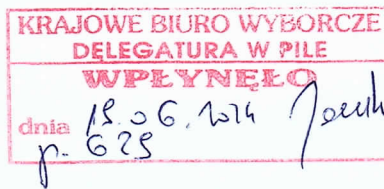 KRAJOWE BIURO WYBORCZE
DELEGATURA W PILE
WPŁYNĘŁO
dnia 19.06.2024
p. 629